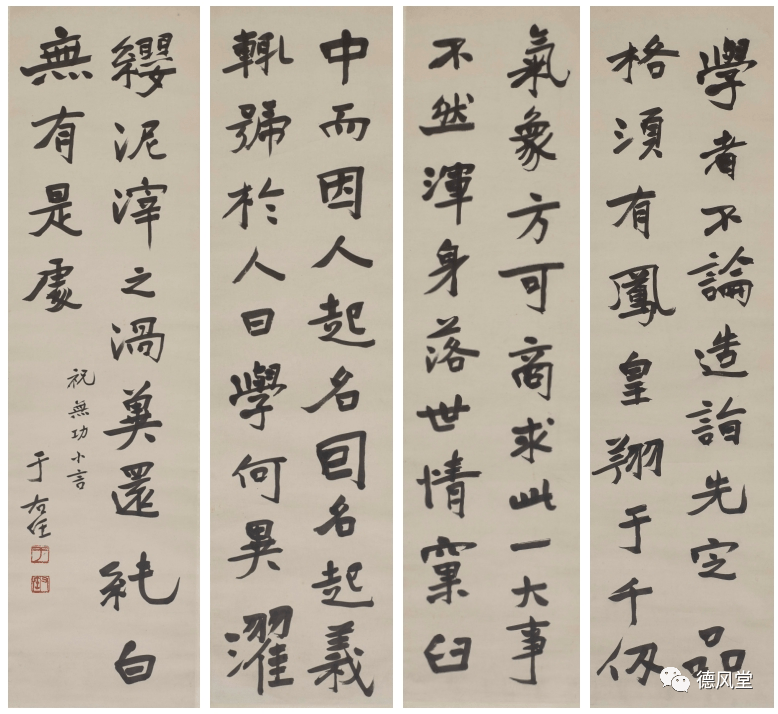 學者不論造詣先定品
格須有鳳皇翔于千仞
氣象方可商求此一大事
不然渾身落世情窠臼
中而因人起名囙名起義
輒號於人曰學何異濯
纓泥滓之渦冀還純白
無有是處
祝無功小言
于右任
德风堂